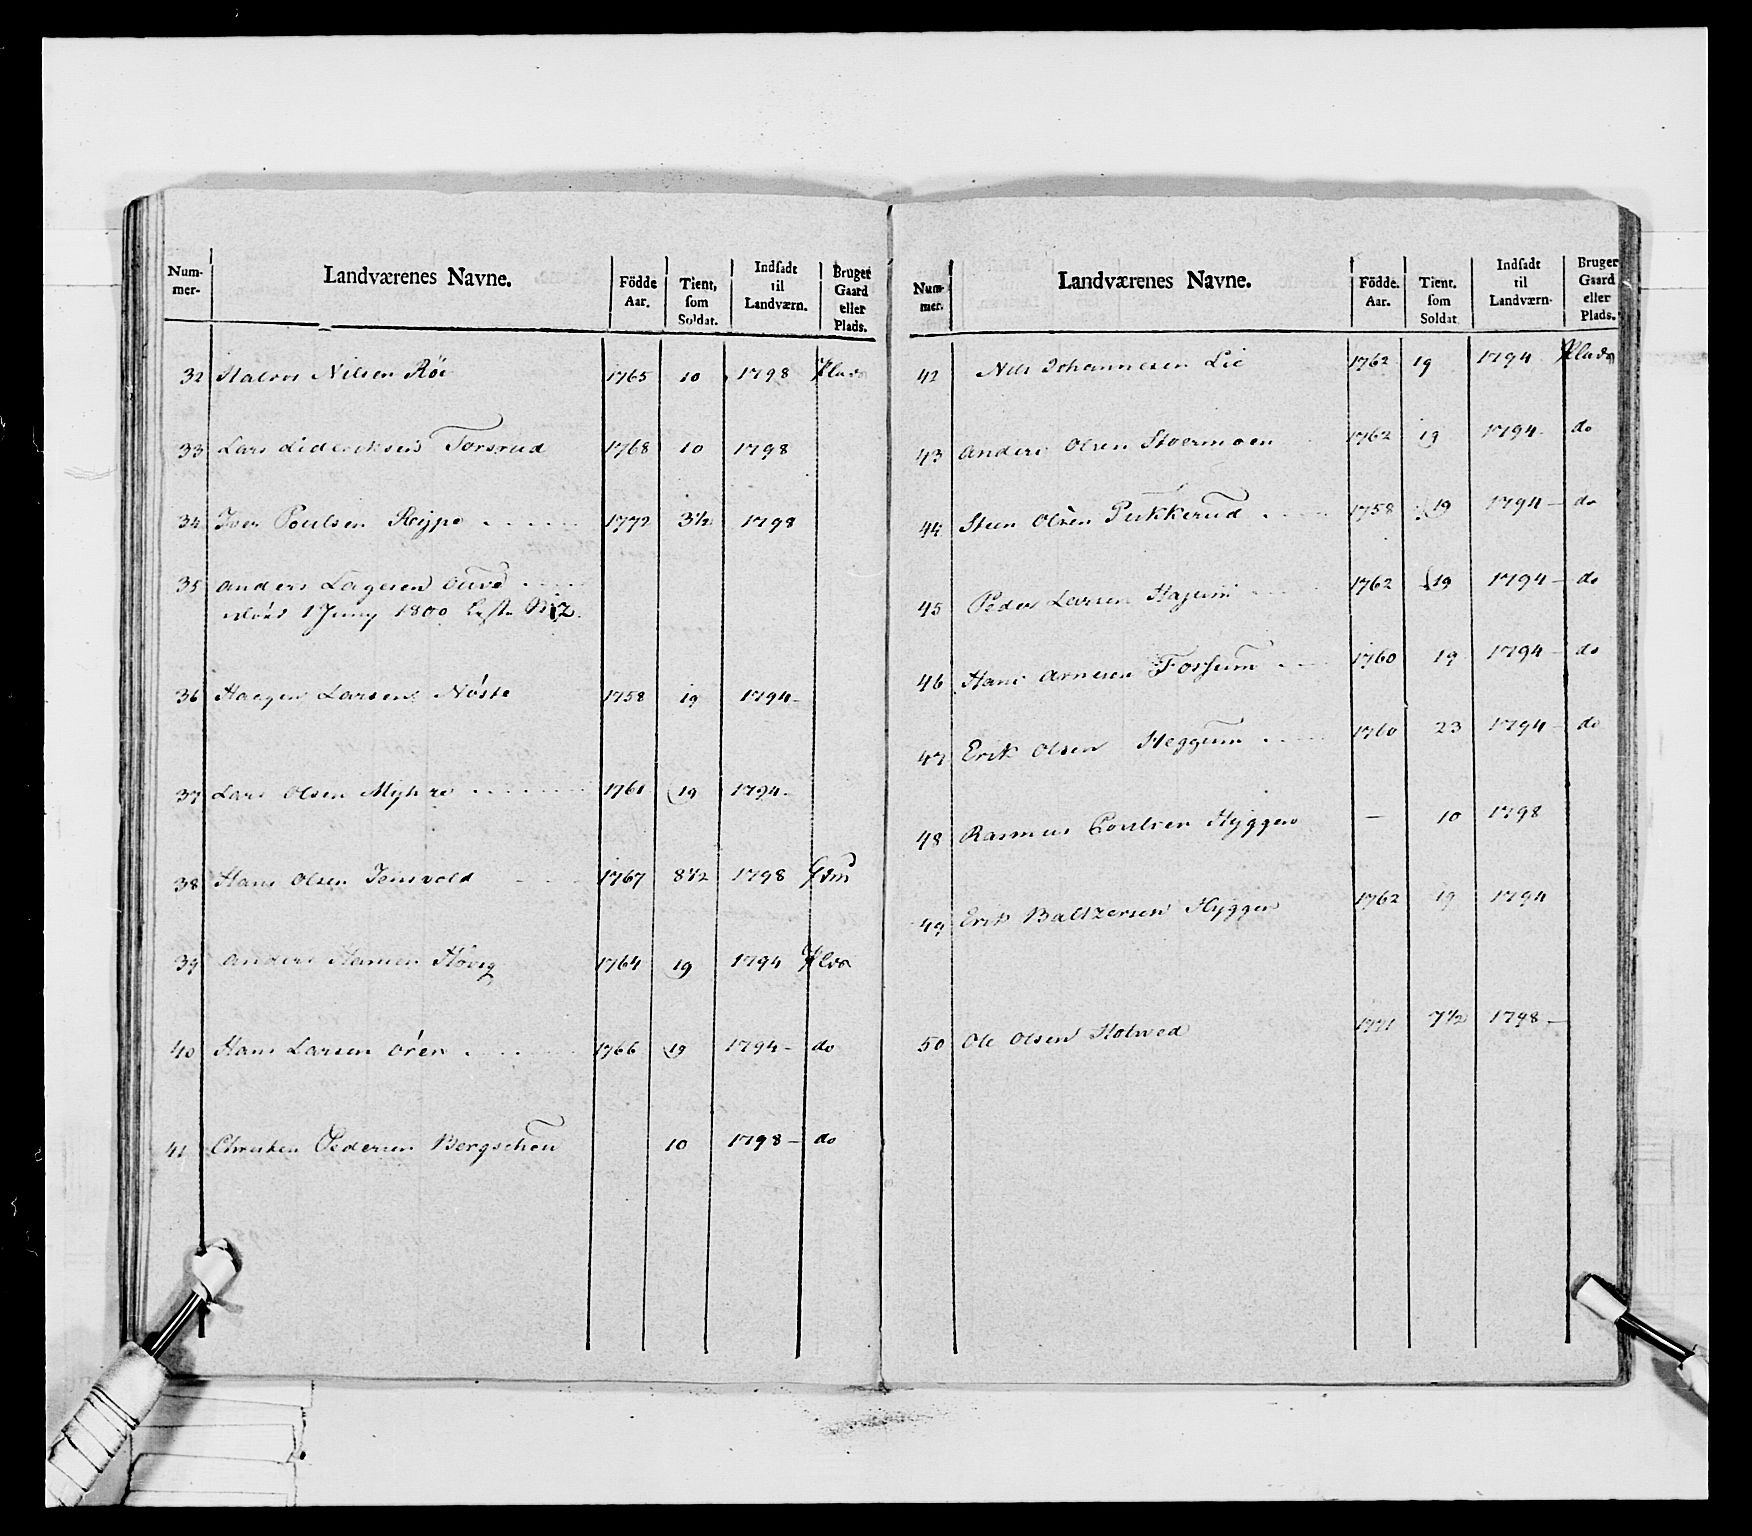 Num-
mer-
Landværenes Navne.
Födde
Aar.
Tient,
som
Soldat.
Indsadt
til
Landværn.
Bruger
Gaard
eller
Plads.
32 Halvor Nilsen Röe 1765 10 1798 Plads
33 Lars Lidericksen Torsrud 1768 10 1798
34 Iver Poulsen Rype 1772 3½ 1798
35 Anders Lagesen
1 Juny 1800
36 Haagen Larsen Nöste 1758 19 1794-
37 Lars Olsen Myhre 1761 19 1794-
38 Hans Olsen Jensvold 1767 8½ 1798
39 Anders Hansen Hövig 1764 19 1794 Plds
40 Hans Larsen Ören 1766 19 1794- do
41 Christen Pedersen Bergschou 10 1798- do
Num-
mer.
Landværenes Navne.
Födde.
Aar.
Tient.
som
Soldat
Indsadt
til
Landværn-
Bruger
Gaard
eller
Plads.
42 Nils Johannesen Lie 1762 19 1794 Plads
43 Anders Olsen Stoermoen 1762 19 1794- do
44 Steen Olsen Pukkerud 1758 19 1794- do
45 Peder Larsen 1762 19 1794- do
46 Hans Arnesen Fossum 1760 19 1794- do
47 Erik Olsen Heggum 1760 23 1794- do
48 Rasmus Poulsen Hyggen - 10 1798
49 Erik Baltzersen Hyggen 1762 19 1794
50 Ole Olsen Holwed 1771 7½ 1798-